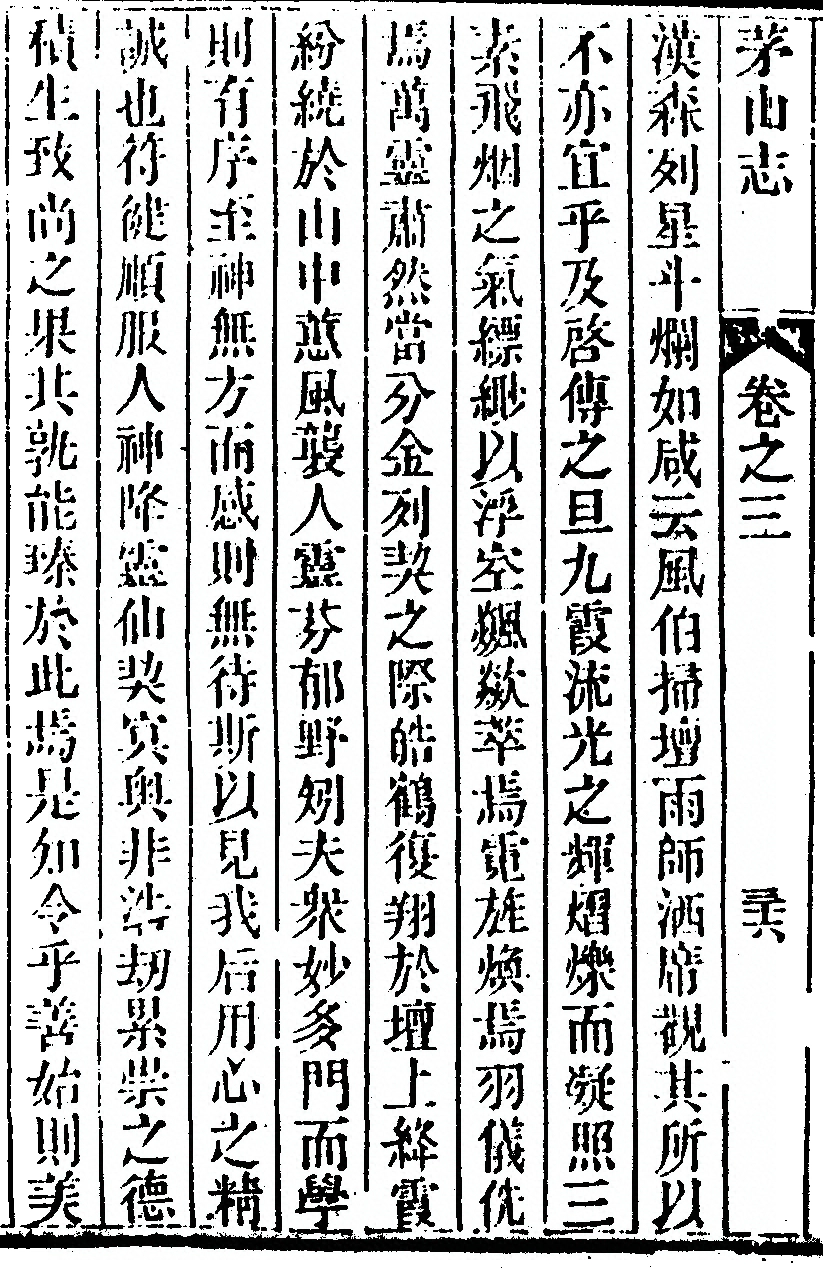 茅山志 卷之三 三六
漢森列星斗爛如咸云風伯掃壇雨師洒席觀其所以
不亦宜乎及啓傳之旦九霞流光之輝熠爍而凝照三
素飛烟之氣縹緲以浮空飄歘萃焉電旌煥焉羽儀侁
焉萬靈肅然當分金列契之際皓鶴復翔於壇上絳霞
紛繞於山中蕙風襲人靈芬郁野矧夫衆妙多門而學
則有序至神無方而感則無待斯以見我后用心之精
誠也符徒順服人神降靈仙契冥與非浩劫累崇之德
積生致尚之果其孰能臻於此焉是知令乎善始則美